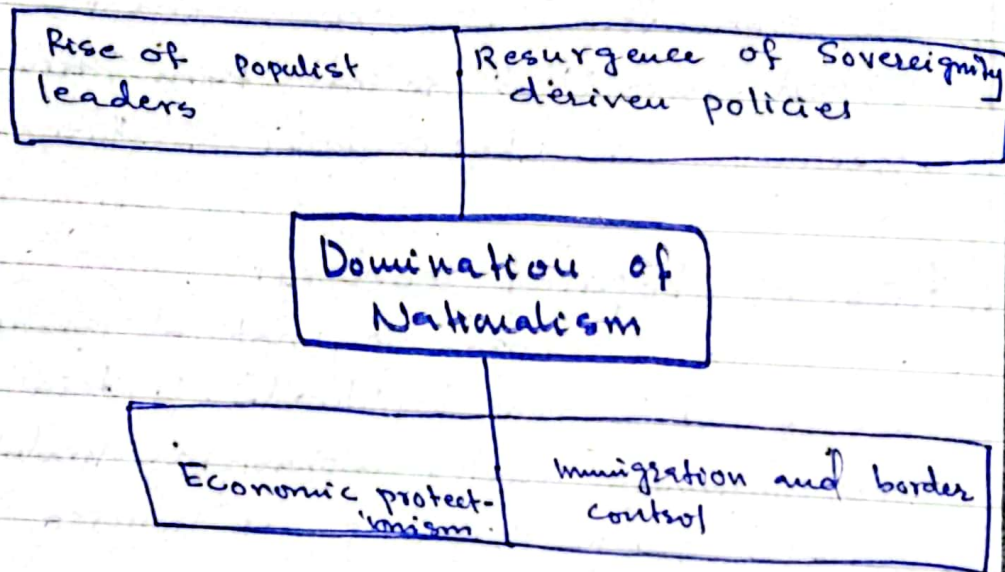 Rise of Populist
leaders
Resurgence of Sovereignity
deriven policies
Domination of
Nationalism
Economic protect-
ionism.
Immigration and border
control